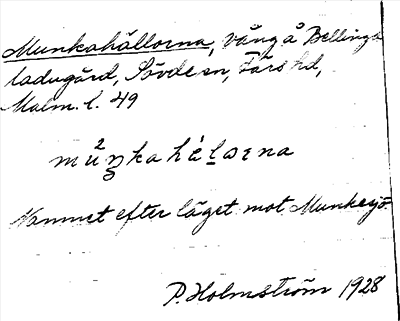 Munkahällorna, vång å Bellinga
ladugård, Sövde sn, Färs hd,
Malm. l. 49
Namnet efter läget mot Munkesjö.
P. Holmström 1928